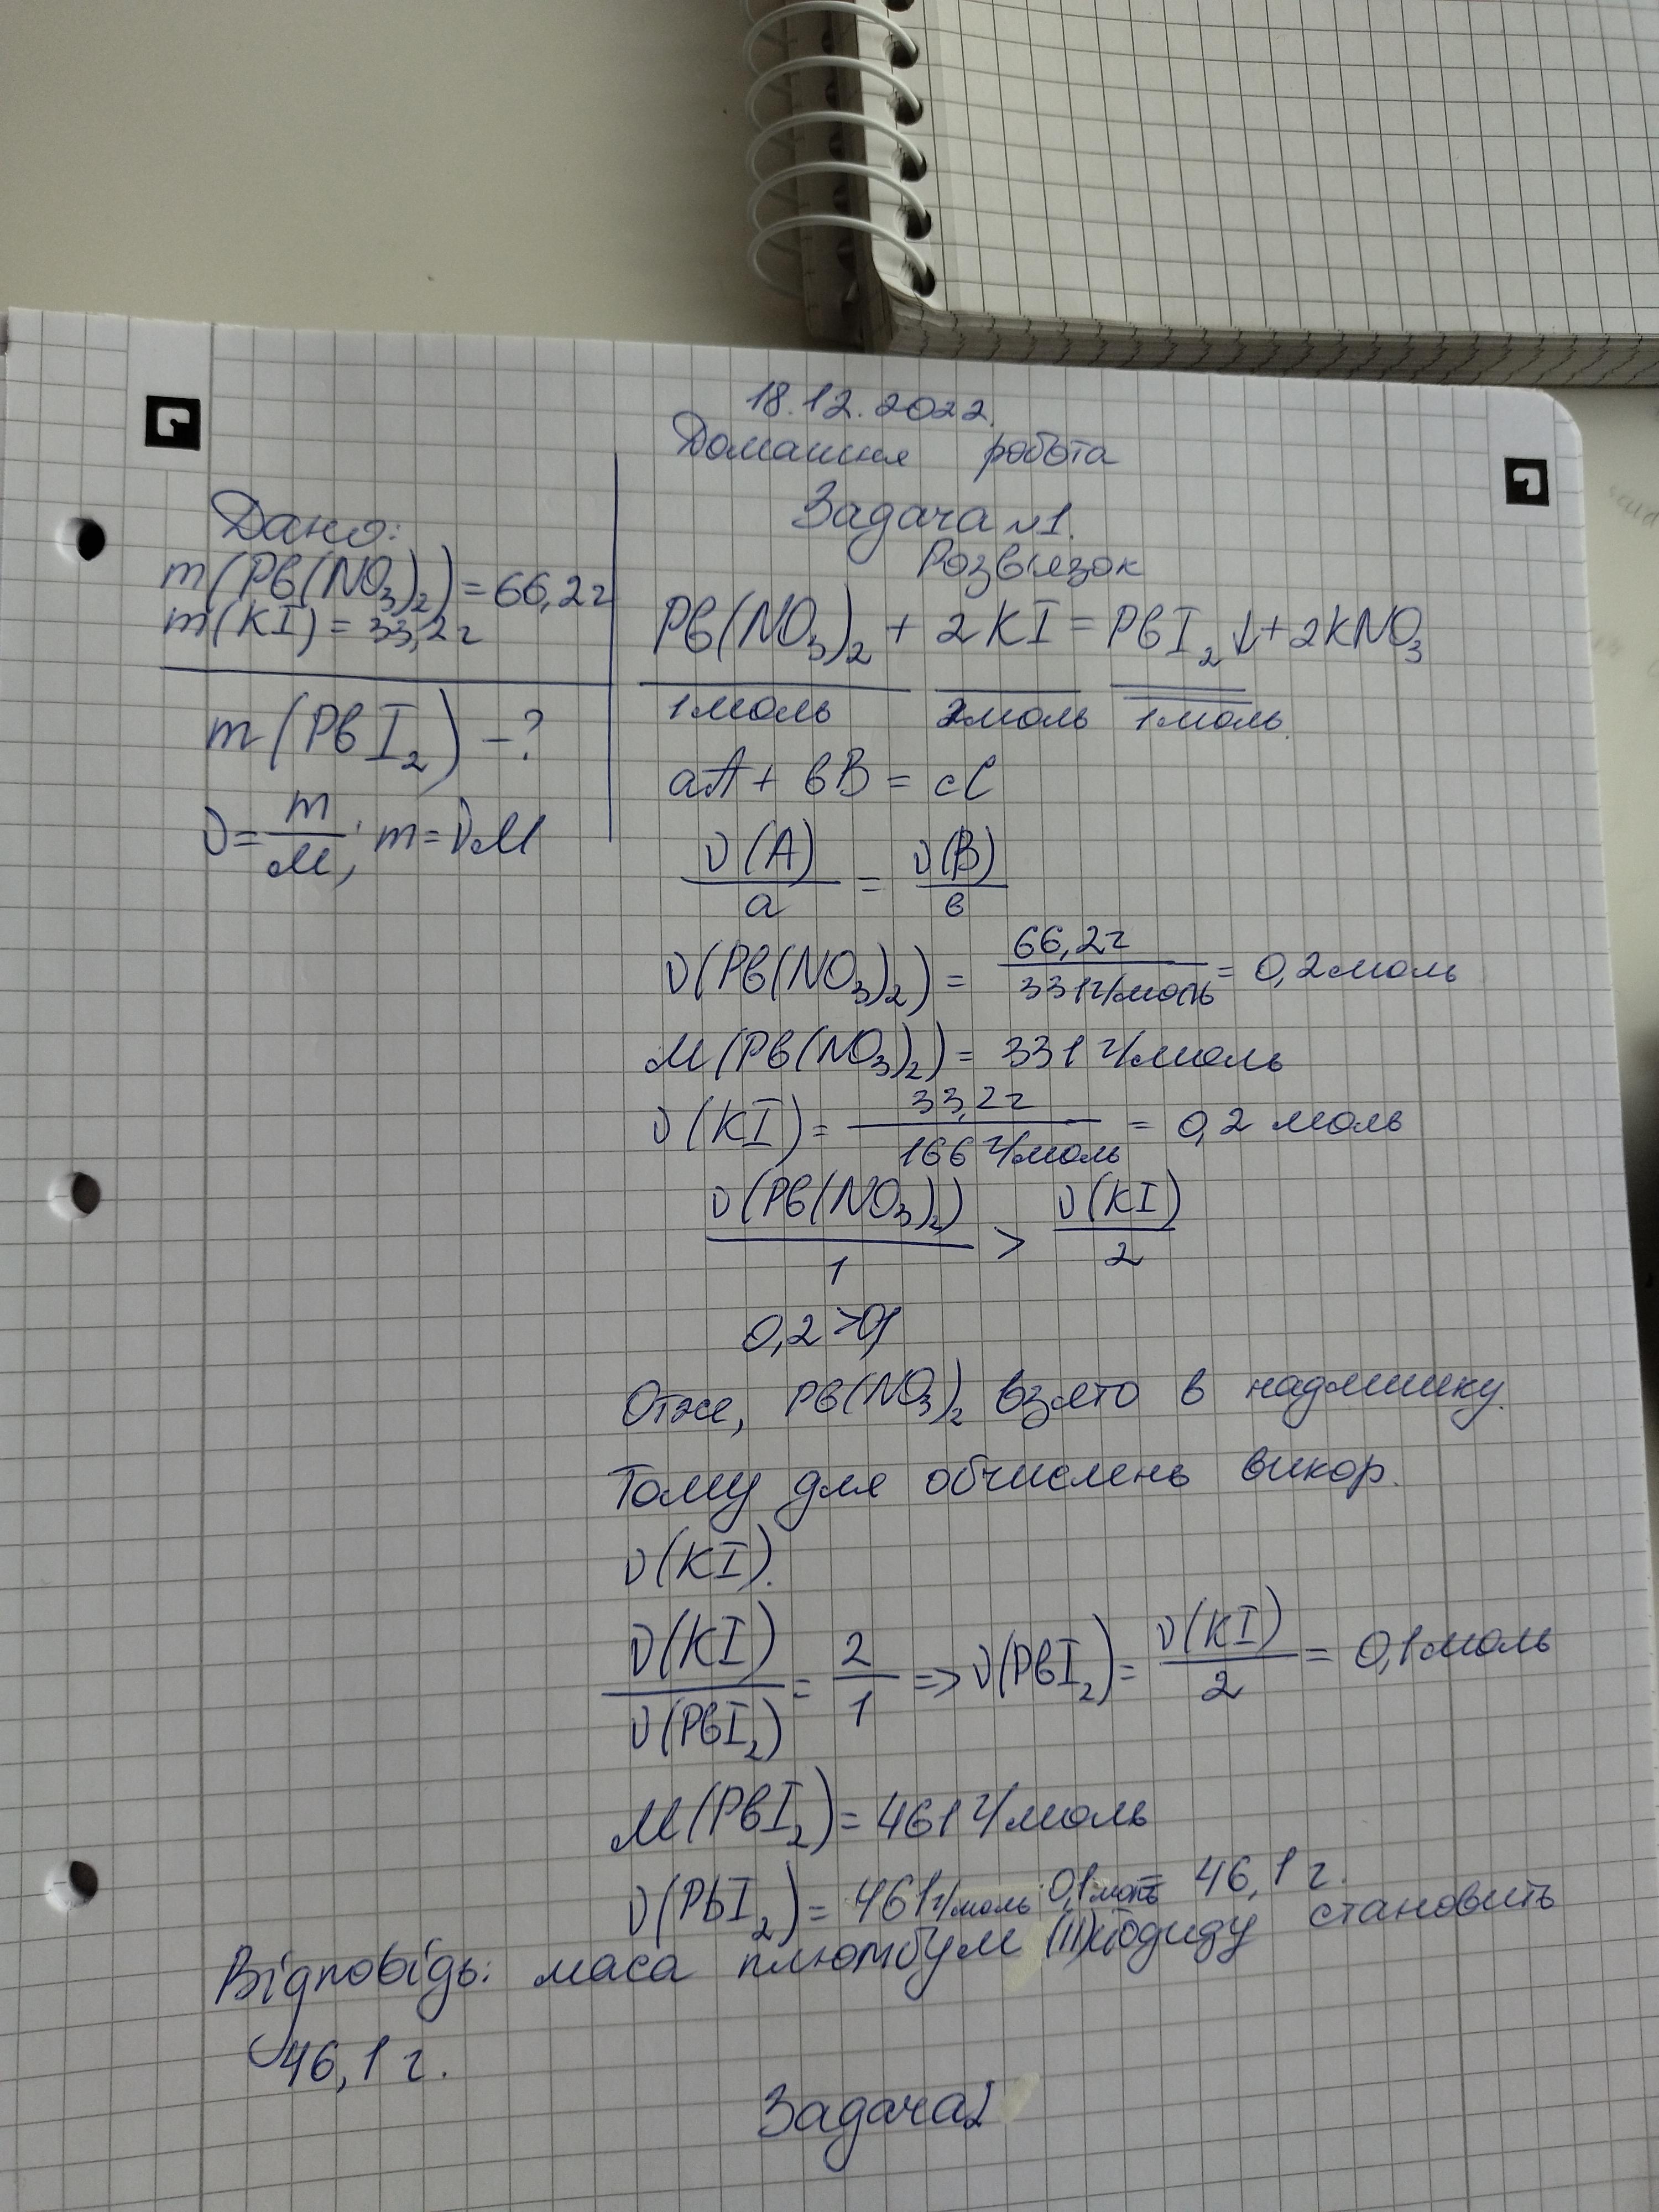 18.12.2022.
Домашня робота
Задача №1.
Дано:
m(Pb(NO₃)₂) = 66,2г
m(KI) = 33,2г
m(PbI₂) - ?
ν = m/M; m = νM
Розв'язок
Pb(NO₃)₂ + 2KI = PbI₂↓ + 2KNO₃
1моль 2моль 1моль.
aA + bB = cC
ν(A)/a = ν(B)/b
ν(Pb(NO₃)₂) = 66,2г/331г/моль = 0,2моль
M(Pb(NO₃)₂) = 331 г/моль
ν(KI) = 33,2г/166 г/моль = 0,2 моль
ν(Pb(NO₃)₂)/1 > ν(KI)/2
0,2 > 0,1
Отже, Pb(NO₃)₂ взято в надлишку.
Тому для обчислень викор.
ν(KI).
ν(KI)/ν(PbI₂) = 2/1 => ν(PbI₂) = ν(KI)/2 = 0,1моль
M(PbI₂) = 461 г/моль
ν(PbI₂) = 461г/моль · 0,1моль = 46,1 г.
Відповідь: маса плюмбум (II) йодиду становить
46,1 г.
Задача2